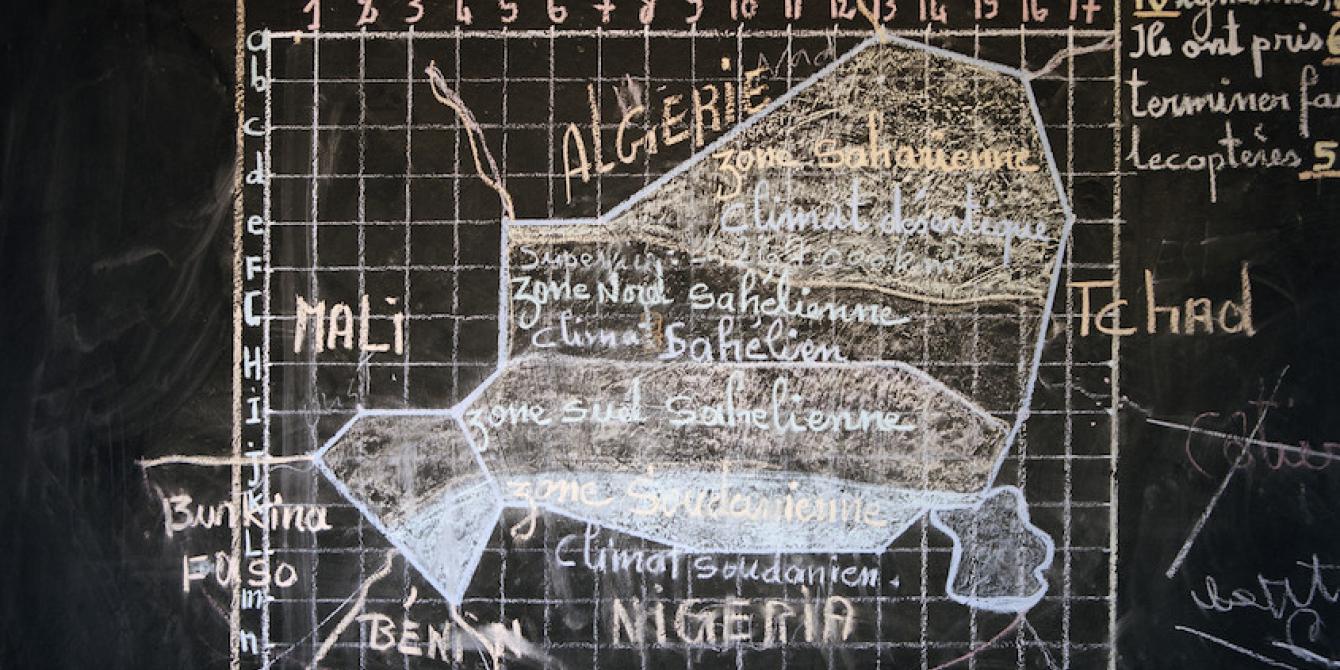 1 2 3 4 5 6 7 8 9 10 11 12 13 14 15 16 17
a
b
c
d
e
F
G
H
I
J
K
L
m
n
ALGERIE
zone Saharienne
Climat désertique
zone Nord Sahélienne
Climat Sahélien
MALi
Tchad
zone sud Sahelienne
zone Soudanienne
Climat soudanien.
Burkina
Faso
BÉNIN
NiGERiA
Ils ont pris
terminer
lecoptères 5